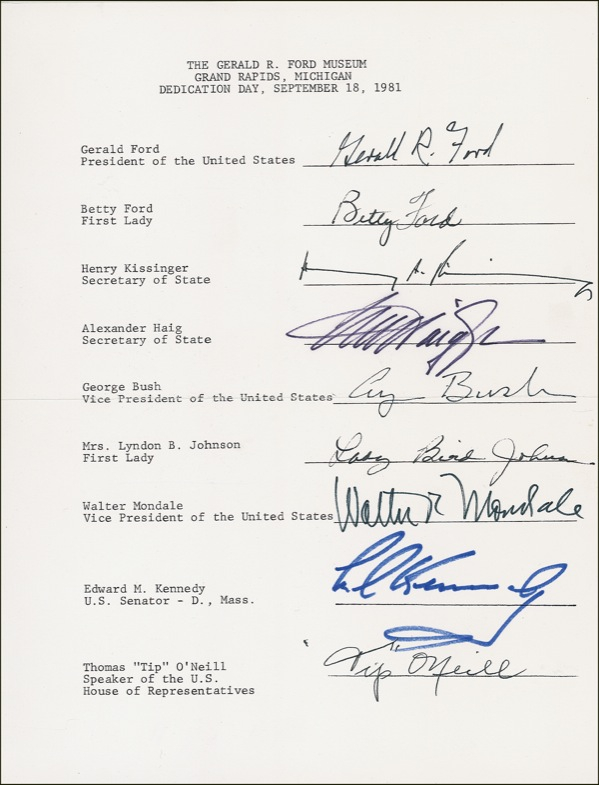 THE GERALD R. FORD MUSEUM
GRAND RAPIDS, MICHIGAN
DEDICATION DAY, SEPTEMBER 18, 1981
Gerald Ford
President of the United States
Gerald R. Ford
Betty Ford
First Lady
Betty Ford
Henry Kissinger
Secretary of State
Henry A. Kissinger
Alexander Haig
Secretary of State
George Bush
Vice President of the United States
Bush
Mrs. Lyndon B. Johnson
First Lady
Lady Bird Johnson
Walter Mondale
Vice President of the United States
Walter F Mondale
Edward M. Kennedy
U.S. Senator - D., Mass.
Thomas "Tip" O'Neill
Speaker of the U.S.
House of Representatives
Tip O'Neill